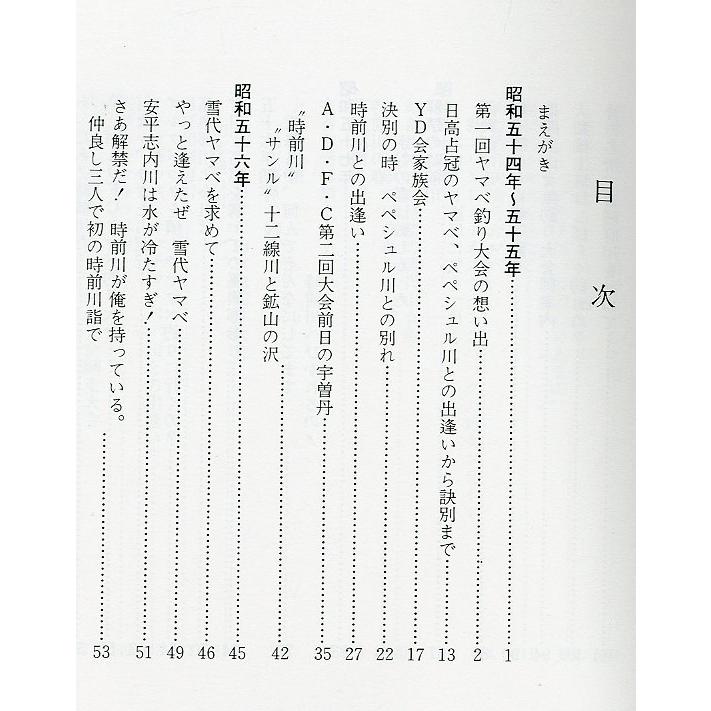 目次
まえがき
昭和五十四年～五十五年……1
第一回ヤマベ釣り大会の想い出……2
日高占冠のヤマベ、ペペシュル川との出逢いから訣別まで……13
YD会家族会……17
決別の時　ペペシュル川との別れ……22
時前川との出逢い……27
A・D・F・C第二回大会前日の宇曽丹……35
〝時前川〟
〝サンル〟十二線川と鉱山の沢……42
昭和五十六年……45
雪代ヤマベを求めて……46
やっと逢えたぜ　雪代ヤマベ……49
安平志内川は水が冷たすぎ！……51
さあ解禁だ！　時前川が俺を持っている。
仲良し三人で初の時前川詣で……53